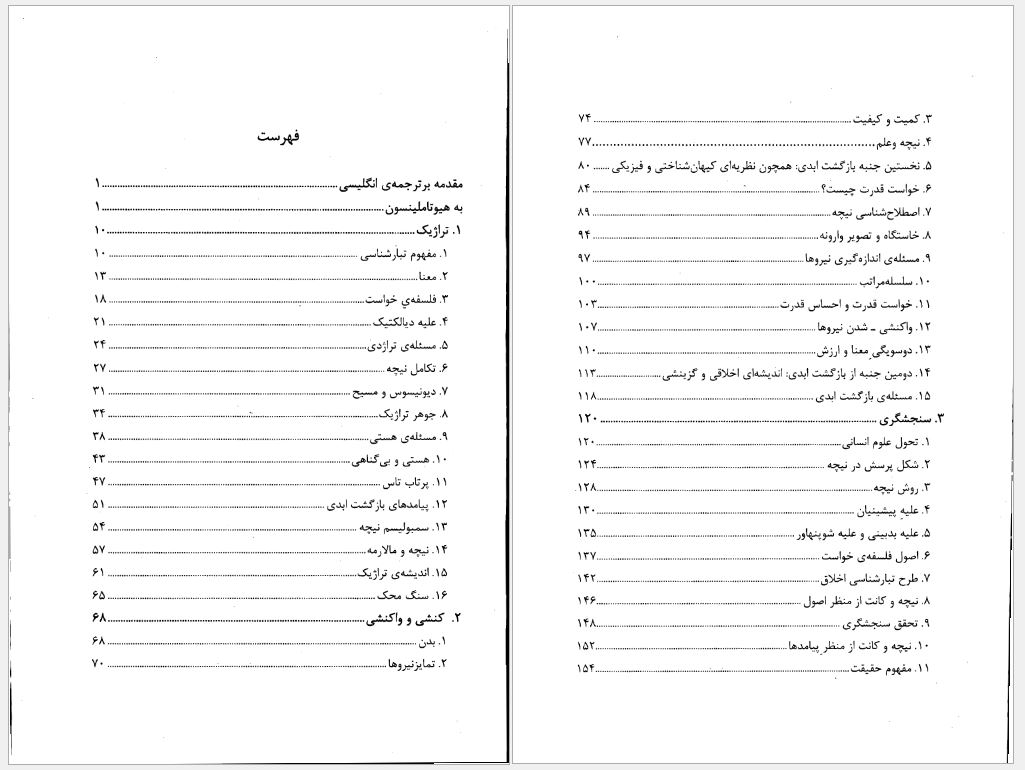 فهرست
مقدمه برترجمه‌ی انگلیسی ۱
به هیوتاملینسون ۱
۱. تراژیک ۱۰
۱. مفهوم تبارشناسی ۱۰
۲. معنا ۱۳
۳. فلسفه‌ي خواست ۱۸
۴. علیه دیالکتیک ۲۱
۵. مسئله‌ی تراژدی ۲۴
۶. تکامل نیچه ۲۷
۷. دیونیسوس و مسیح ۳۱
۸. جوهر تراژیک ۳۴
۹. مسئله‌ی هستی ۳۸
۱۰. هستی و بی‌گناهی ۴۳
۱۱. پرتاب تاس ۴۷
۱۲. پیامدهای بازگشت ابدی ۵۱
۱۳. سمبولیسم نیچه ۵۴
۱۴. نیچه و مالارمه ۵۷
۱۵. اندیشه‌ی تراژیک ۶۱
۱۶. سنگ محک ۶۵
۲. کنشی و واکنشی ۶۸
۱. بدن ۶۸
۲. تمایزنیروها ۷۰
۳. کمیت و کیفیت ۷۴
۴. نیچه وعلم ۷۷
۵. نخستین جنبه بازگشت ابدی: همچون نظریه‌ای کیهان‌شناختی و فیزیکی ۸۰
۶. خواست قدرت چیست؟ ۸۴
۷. اصطلاح‌شناسی نیچه ۸۹
۸. خاستگاه و تصویر وارونه ۹۴
۹. مسئله‌ی اندازه‌گیری نیروها ۹۷
۱۰. سلسله‌مراتب ۱۰۰
۱۱. خواست قدرت و احساس قدرت ۱۰۳
۱۲. واکنشی ـ شدن نیروها ۱۰۷
۱۳. دوسویگی معنا و ارزش ۱۱۰
۱۴. دومین جنبه از بازگشت ابدی: اندیشه‌ای اخلاقی و گزینشی ۱۱۳
۱۵. مسئله‌ی بازگشت ابدی ۱۱۸
۳. سنجشگری ۱۲۰
۱. تحول علوم انسانی ۱۲۰
۲. شکل پرسش در نیچه ۱۲۴
۳. روش نیچه ۱۲۸
۴. علیه پیشینیان ۱۳۰
۵. علیه بدبینی و علیه شوپنهاور ۱۳۵
۶. اصول فلسفه‌ی خواست ۱۳۷
۷. طرح تبارشناسی اخلاق ۱۴۲
۸. نیچه و کانت از منظر اصول ۱۴۶
۹. تحقق سنجشگری ۱۴۸
۱۰. نیچه و کانت از منظر پیامدها ۱۵۲
۱۱. مفهوم حقیقت ۱۵۴